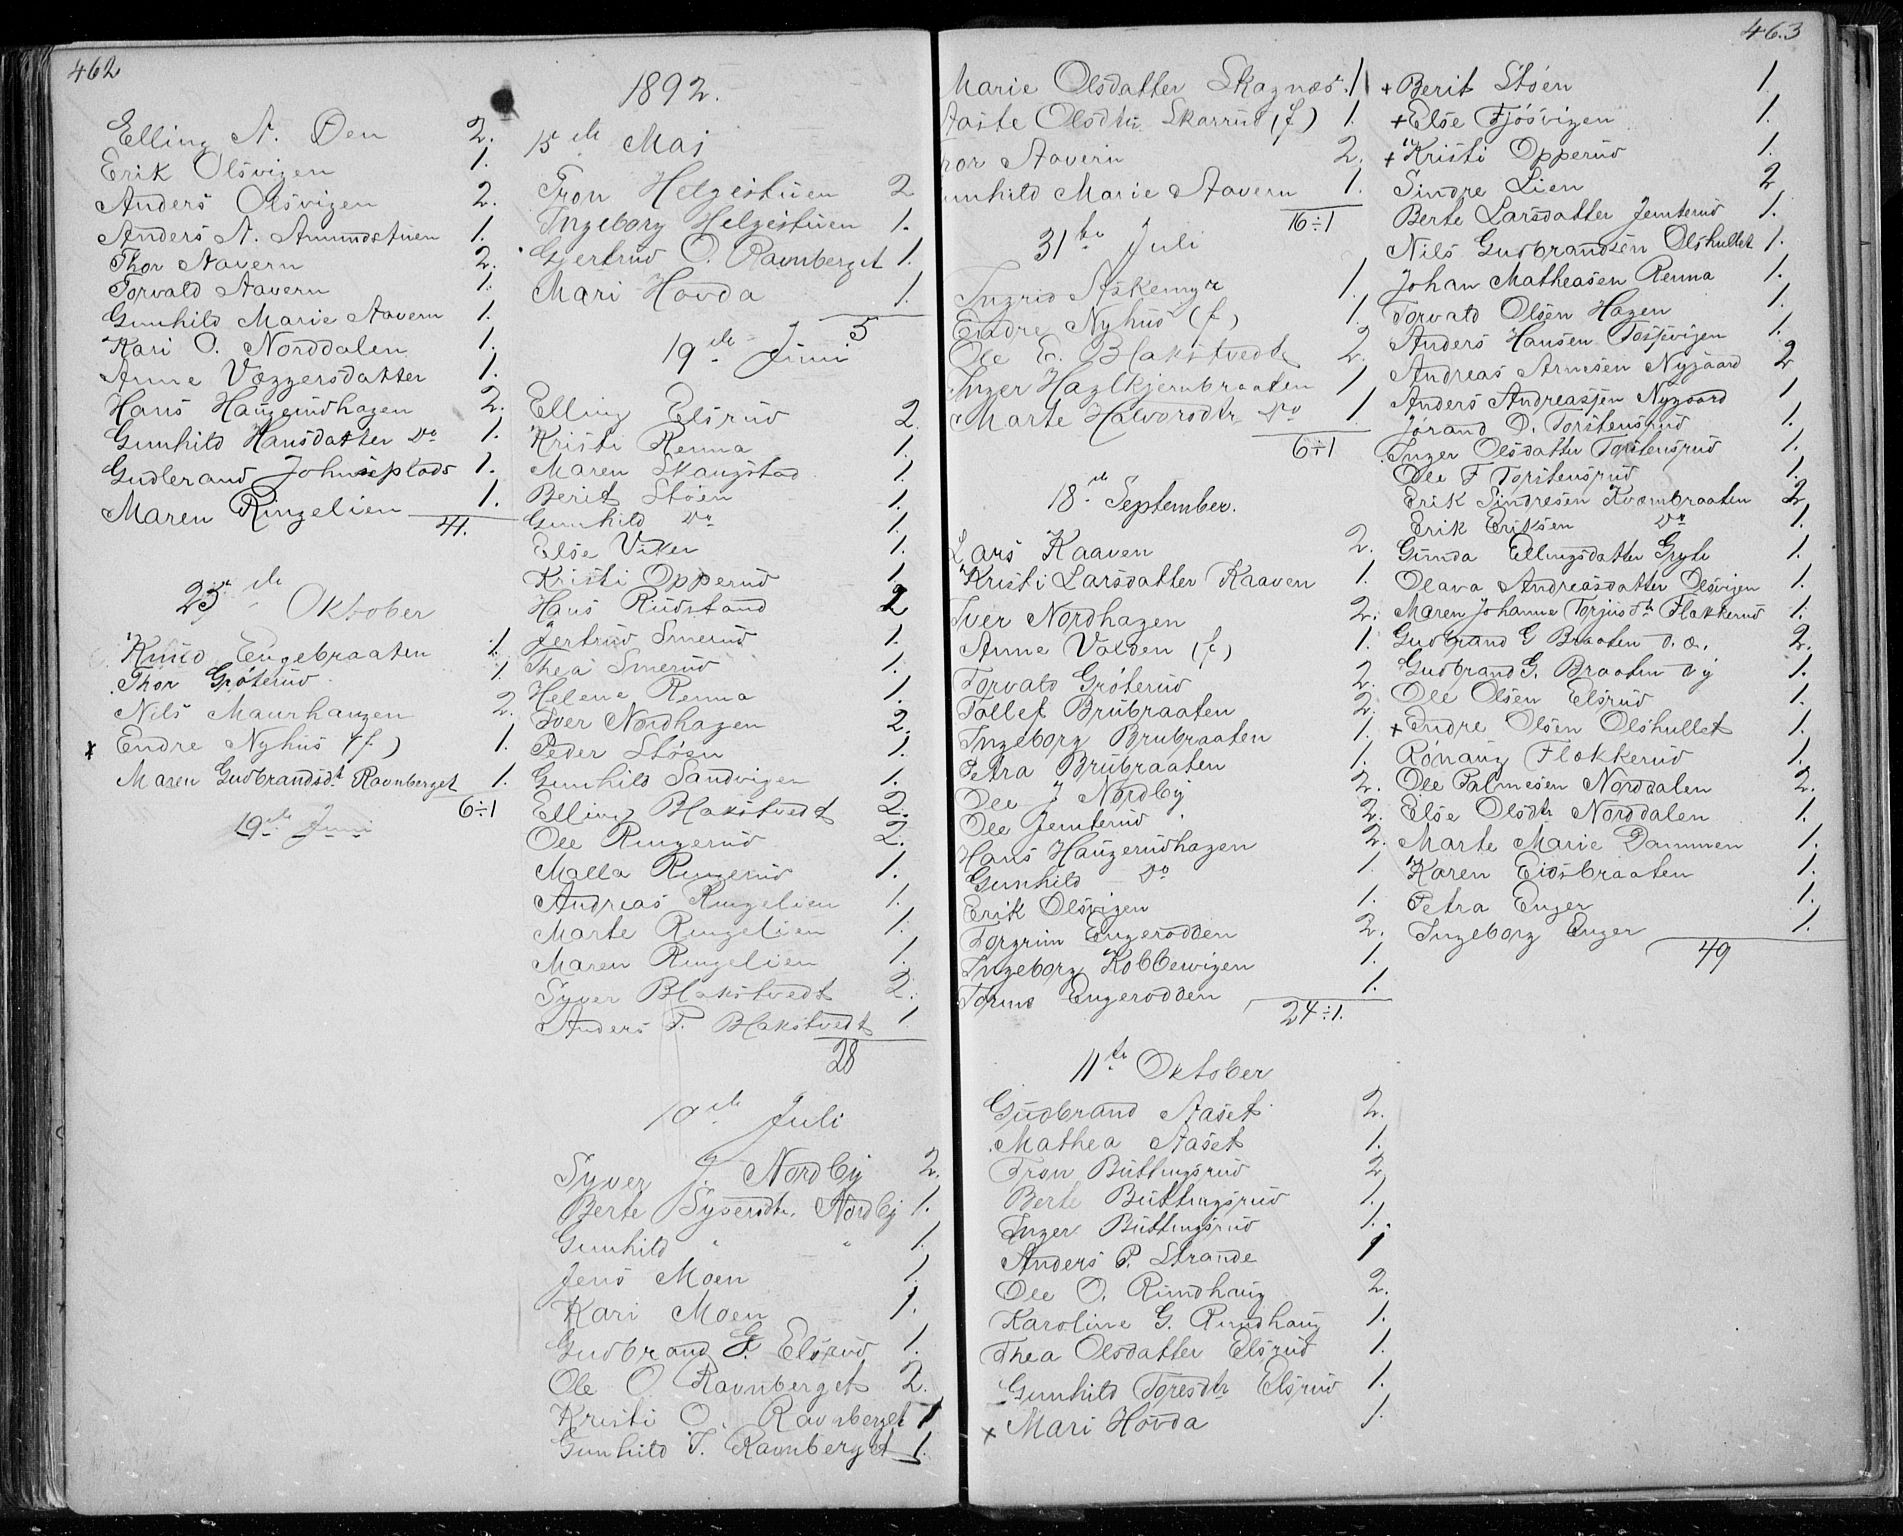 462
Elling A. Øen 2.
Erik Olsvigen 1.
Anders Olsvigen 2.
Anders A. Amundstuen 1.
Thor Aavern 2.
Torvald Aavern 1.
Gunhild Marie Aavern 1.
Kari O. Norddalen 1.
Anne Væggersdatter 1.
Hans Haugerudhagen 2.
Gunhild Hansdatter Do 1.
Gudbrand Johnsplads 1.
Maren Ringelien 1.
41.
25de Oktober
Knud Engebraaten 1.
Thor Grøterud 1.
Nils Maurhaugen 2.
x Endre Nyhus (f.) 1.
Maren Gudbrandsdt. Ravnberget 1.
6÷1
19de Juni
1892.
15de Maj
Tron Helgestuen 2
Ingeborg Helgestuen 1.
Gjertrud O. Ravnberget 1.
Mari Hovda 1.
5
19de Juni
Elling Elsrud 2.
Kristi Renna 1.
Maren Skaugstad 1.
Berit Støen 1.
Gunhild Do 1.
Else Viker 1.
Kristi Opperud 1.
Hans Rudstand 2
Jertrud Smerud 1.
Thea Smerud 1.
Helene Renna 1.
Iver Nordhagen 2.
Peder Støen 1.
Gunhild Sandvigen 1.
Elling Blakstvedt 2.
Ole Ringerud 2.
Malla Ringerud 1.
Andreas Ringelien 1.
Marte Ringelien 1.
Maren Ringelien 1.
Syver Blakstvedt 2.
Anders P. Blakstvedt 1.
28
10de Juli
Syver J. Nordby 2.
Berte Syversdtr. Nordby 1.
Gunhild " " 1.
Jens Moen 1.
Kari Moen 1.
Gudbrand G. Elsrud 1.
Ole O. Ravnberget 2.
Kristi O. Ravnberget 1
Gunhild T. Ravnberget 1.
463
Marie Olsdatter Skagnæs 1.
Aaste Olsdtr. Skarrud (f) 1.
Tor Aavern 2.
Gunhild Marie Aavern 1.
16÷1
31te Juli
Ingrid Askemyr 1.
Endre Nyhus (f.) 1.
Ole E. Blakstvedt 2.
Inger Haglkjernbraaten 1
Marte Halvorsdtr. Do 1.
6÷1
18de September.
Lars Kaaven 2.
Kristi Larsdatter Kaaven 1.
Iver Nordhagen 2.
Anne Valden (f.) 1.
Torvald Grøterud 2.
Tollef Brubraaten 2.
Ingeborg Brubraaten 1.
Petra Brubraaten 1.
Ole J Nordby 2.
Ole Jemterud 2.
Hans Haugerudhagen 2.
Gunhild Do 1.
Erik Olsvigen 1.
Torgrim Engerodden 2.
Ingeborg Kobbervigen 1.
Engerodden 1.
24÷1.
11te Oktober
Gudbrand Aaset 2.
Mathea Aaset 1.
Tron Buttingsrud 2
Berte Buttingsrud 1.
Inger Buttingsrud 1.
Anders P. Strande 1
Ole O. Rundhaug 2.
Karoline G. Rundhaug 1.
Thea Olsdatter Elsrud 1.
Gunhild Toresdtr Elsrud 1.
x Mari Hovda 1.
+ Berit Støen 1.
+ Else Fjøsvigen 1.
+ Kristi Opperud 1.
Sindre Lien 2
Berte Larsdatter Jemterud 1.
Nils Gudbrandsen Olshullet 1.
Johan Matheasen Renna 1.
Torvald Olsen Hagen 1.
Anders Hansen 1.
Andreas Arnesen Nygaard 2
Anders Andreassen Nygaard 1
Jørand O. Torstensrud 1.
Inger Olsdatter Torstensrud 1.
Ole F Torstensrud 1.
Erik Sindresen Kvernbraaten 2
Erik Eriksen Do 1.
Gunda Ellingsdatter Gryte 1.
Olava Andreasdatter Olsvigen 1.
Maren Johanne Torjusdtr Flakkerud 1.
Gudbrand G Braaten d. æ. 2.
Gudbrand G. Braaten d y 1.
Ole Olsen Elsrud 1.
+ Endre Olsen Olshullet 1.
Rønaug Flakkerud 1.
Ole Palmesen Norddalen 2.
Else Olsdtr Norddalen 1.
Marte Marie Dammen 1.
Karen Eidsbraaten 1.
Petra Enger 1.
Ingeborg Enger 1.
49